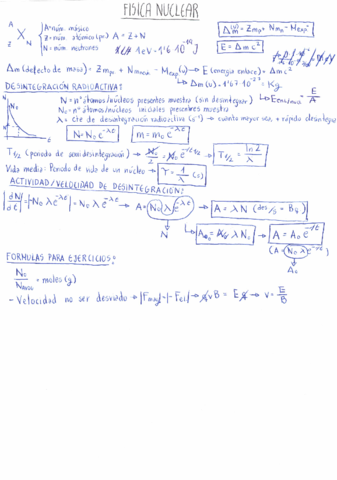 FÍSICA NUCLEAR
A Z X N { A=núm. másico
Z=núm. atómico (p+) A = Z + N
N = núm neutrones 1eV = 1'6·10⁻¹⁹ J
Δm(u) = Z mp+ + N mn - M exp
E = Δm c²
Δm (defecto de masa) = Z mp+ + N mn - Mexp (u) → E (energía enlace) = Δm c²
Δm (u)· 1'67·10⁻²⁷ = Kg
DESINTEGRACIÓN RADIACTIVA:
E / A
N = nº átomos/núcleos presentes muestra (sin desintegrar)
N₀ = nº átomos/núcleos iniciales presentes muestra
λ = cte de desintegración radioactiva (s⁻¹) → cuanto mayor sea, + rápido desintegra
N = N₀ e^-λt m = m₀ e^-λt
T1/2 (periodo de semidesintegración) → N₀/2 = N₀ e^-λT1/2 → T1/2 = ln 2 / λ
Vida media: Periodo de vida de un núcleo → τ = 1/λ (s)
ACTIVIDAD/VELOCIDAD DE DESINTEGRACIÓN:
|dN/dt| = |-N₀ λ e^-λt| = N₀ λ e^-λt → A = N₀ λ e^-λt → A = λ N (des/s = Bq)
N
A₀ = λ N₀ → A = A₀ e^-λt
(A = N₀ λ e^-λt)
A₀
FORMULAS PARA EJERCICIOS:
N₀ / NAVOG = moles (g)
- Velocidad no ser desviado → |Fmag| = |-Fel| → q v B = E q → v = E/B